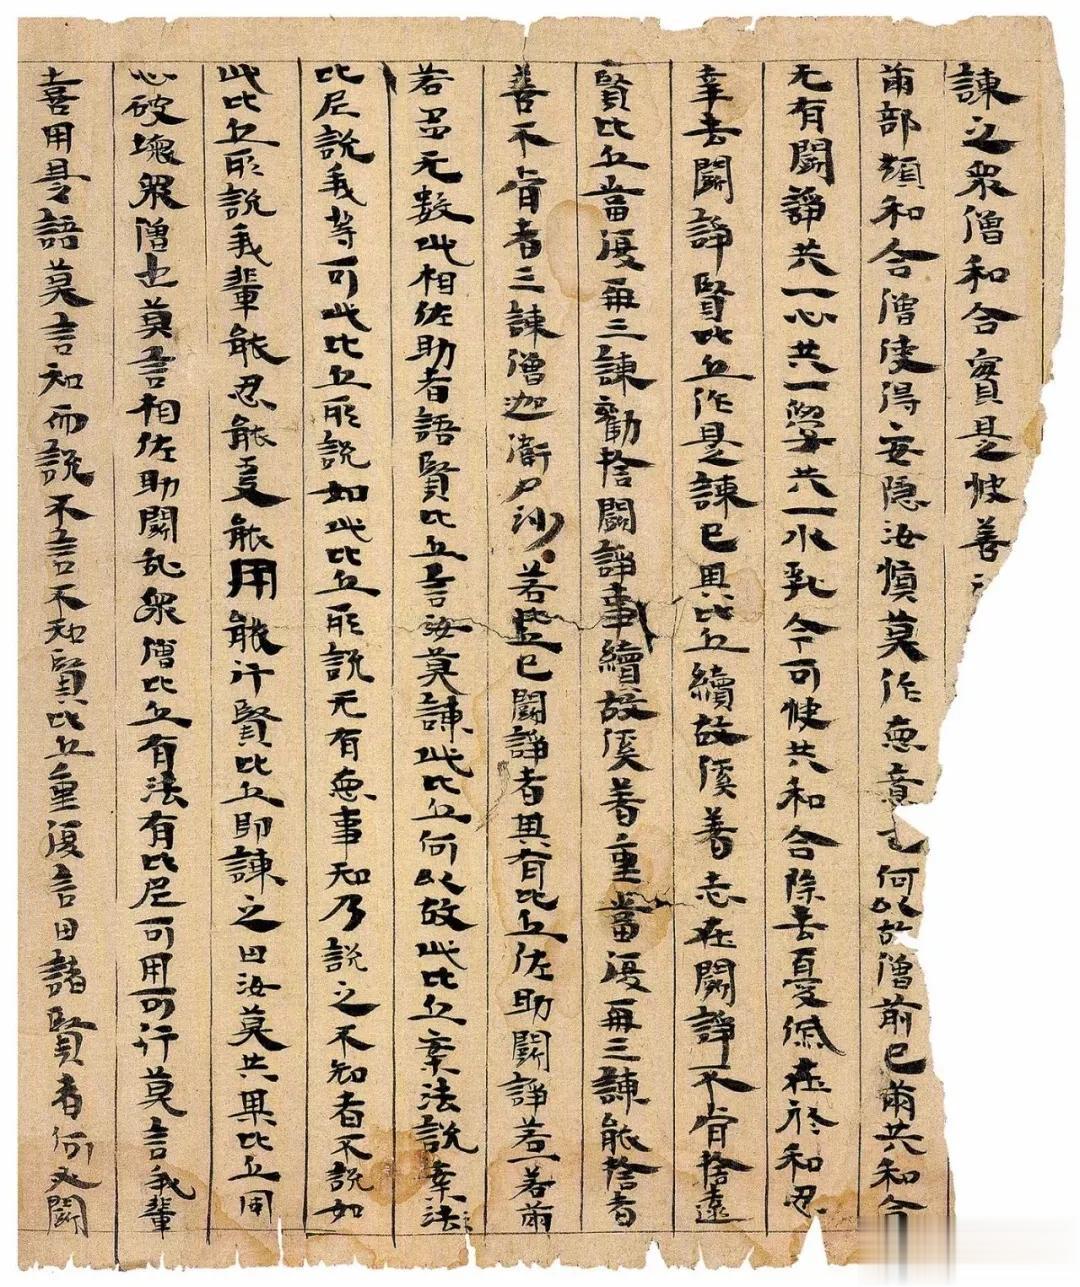 諫之眾僧和合實是快善
兩部類和合僧使得安隱汝慎莫作惡意也何以故僧前已兩共和合
无有鬪諍共一心共一學共一水乳今可快共和合除去憂慼在於和忍
幸去鬪諍賢比丘作是諫已異比丘續故傒著志在鬪諍不肯捨遠
賢比丘當復再三諫勸捨鬪諍事續故傒著重當復再三諫能捨者
善不肯者三諫僧迦衛尸沙若比丘已鬪諍者異有比丘佐助鬪諍若一若兩
若四无數此相佐助者語賢比丘言汝莫諫此比丘何以故此比丘案法說案法
比尼說我等可此比丘所說如此比丘所說无有惡事知乃說之不知者不說如
此比丘所說我輩能忍能受能用能行賢比丘即諫之曰汝莫共異比丘同
心破壞眾僧也莫言相佐助鬪亂眾僧比丘有法有比尼可用可行莫言我輩
喜用是語莫言知而說不言不知賢比丘重復言曰諸賢者何以鬪